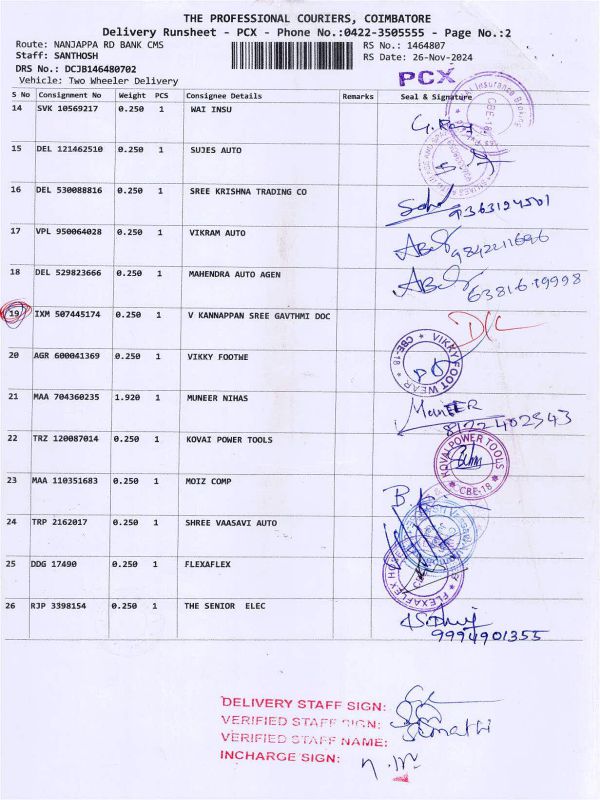 THE PROFESSIONAL COURIERS, COIMBATORE
Delivery Runsheet - PCX - Phone No.:0422-3505555 - Page No.:2
Route: NANJAPPA RD BANK CMS
RS No.: 1464807
Staff: SANTHOSH
RS Date: 26-Nov-2024
DRS No.: DCJB146480702
Vehicle: Two Wheeler Delivery
PCX
S No Consignment No Weight PCS Consignee Details Remarks Seal & Signature
14 SVK 10569217 0.250 1 WAI INSU
15 DEL 121462510 0.250 1 SUJES AUTO
16 DEL 530088816 0.250 1 SREE KRISHNA TRADING CO
17 VPL 950064028 0.250 1 VIKRAM AUTO 9842211696
18 DEL 529823666 0.250 1 MAHENDRA AUTO AGEN
19 IXM 507445174 0.250 1 V KANNAPPAN SREE GAVTHMI DOC
20 AGR 600041369 0.250 1 VIKKY FOOTWE VIKKY FOOT WEAR CBE-18
21 MAA 704360235 1.920 1 MUNEER NIHAS MUNEER
8122402543
22 TRZ 120087014 0.250 1 KOVAI POWER TOOLS KOVAI POWER TOOLS CBE-18
23 MAA 110351683 0.250 1 MOIZ COMP
24 TRP 2162017 0.250 1 SHREE VAASAVI AUTO
25 DDG 17490 0.250 1 FLEXAFLEX
26 RJP 3398154 0.250 1 THE SENIOR ELEC
9994901355
DELIVERY STAFF SIGN:
VERIFIED STAFF SIGN:
VERIFIED STAFF NAME:
INCHARGE SIGN: